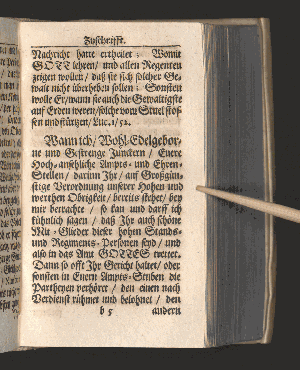 Zuschrifft.
Nachricht hatte ertheilet: Womit
GOTT lehren / und allen Regenten
zeigen wollen / daß sie sich solcher Ge-
walt nicht überheben sollen: Sonsten
wolle Er / wann sie auch die Gewaltigste
auf Erden weren / solche vom Stuel stos-
sen und stürtzen / Luc. 1 / 52.
Wann ich / Wohl-Edelgebor-
ne und Gestrenge Junckern / Euere
Hoch-ansehliche Ampts- und Ehren-
Stellen / darinn Ihr / auf Großgün-
stige Verordnung unserer Hohen und
werthen Obrigkeit / bereits stehet / bey
mir betrachte / so kan und darff ich
kühnlich sagen / daß Ihr auch schöne
Mit-Glieder dieser hohen Stands-
und Regiments-Personen seyd / und
also in das Amt GOTTES tretet.
Dann so offt Ihr Gericht haltet / oder
sonsten in Euern Ampts-Stuben die
Partheyen verhöret / den einen nach
Verdienst rühmet und belohnet / den
b 5 andern